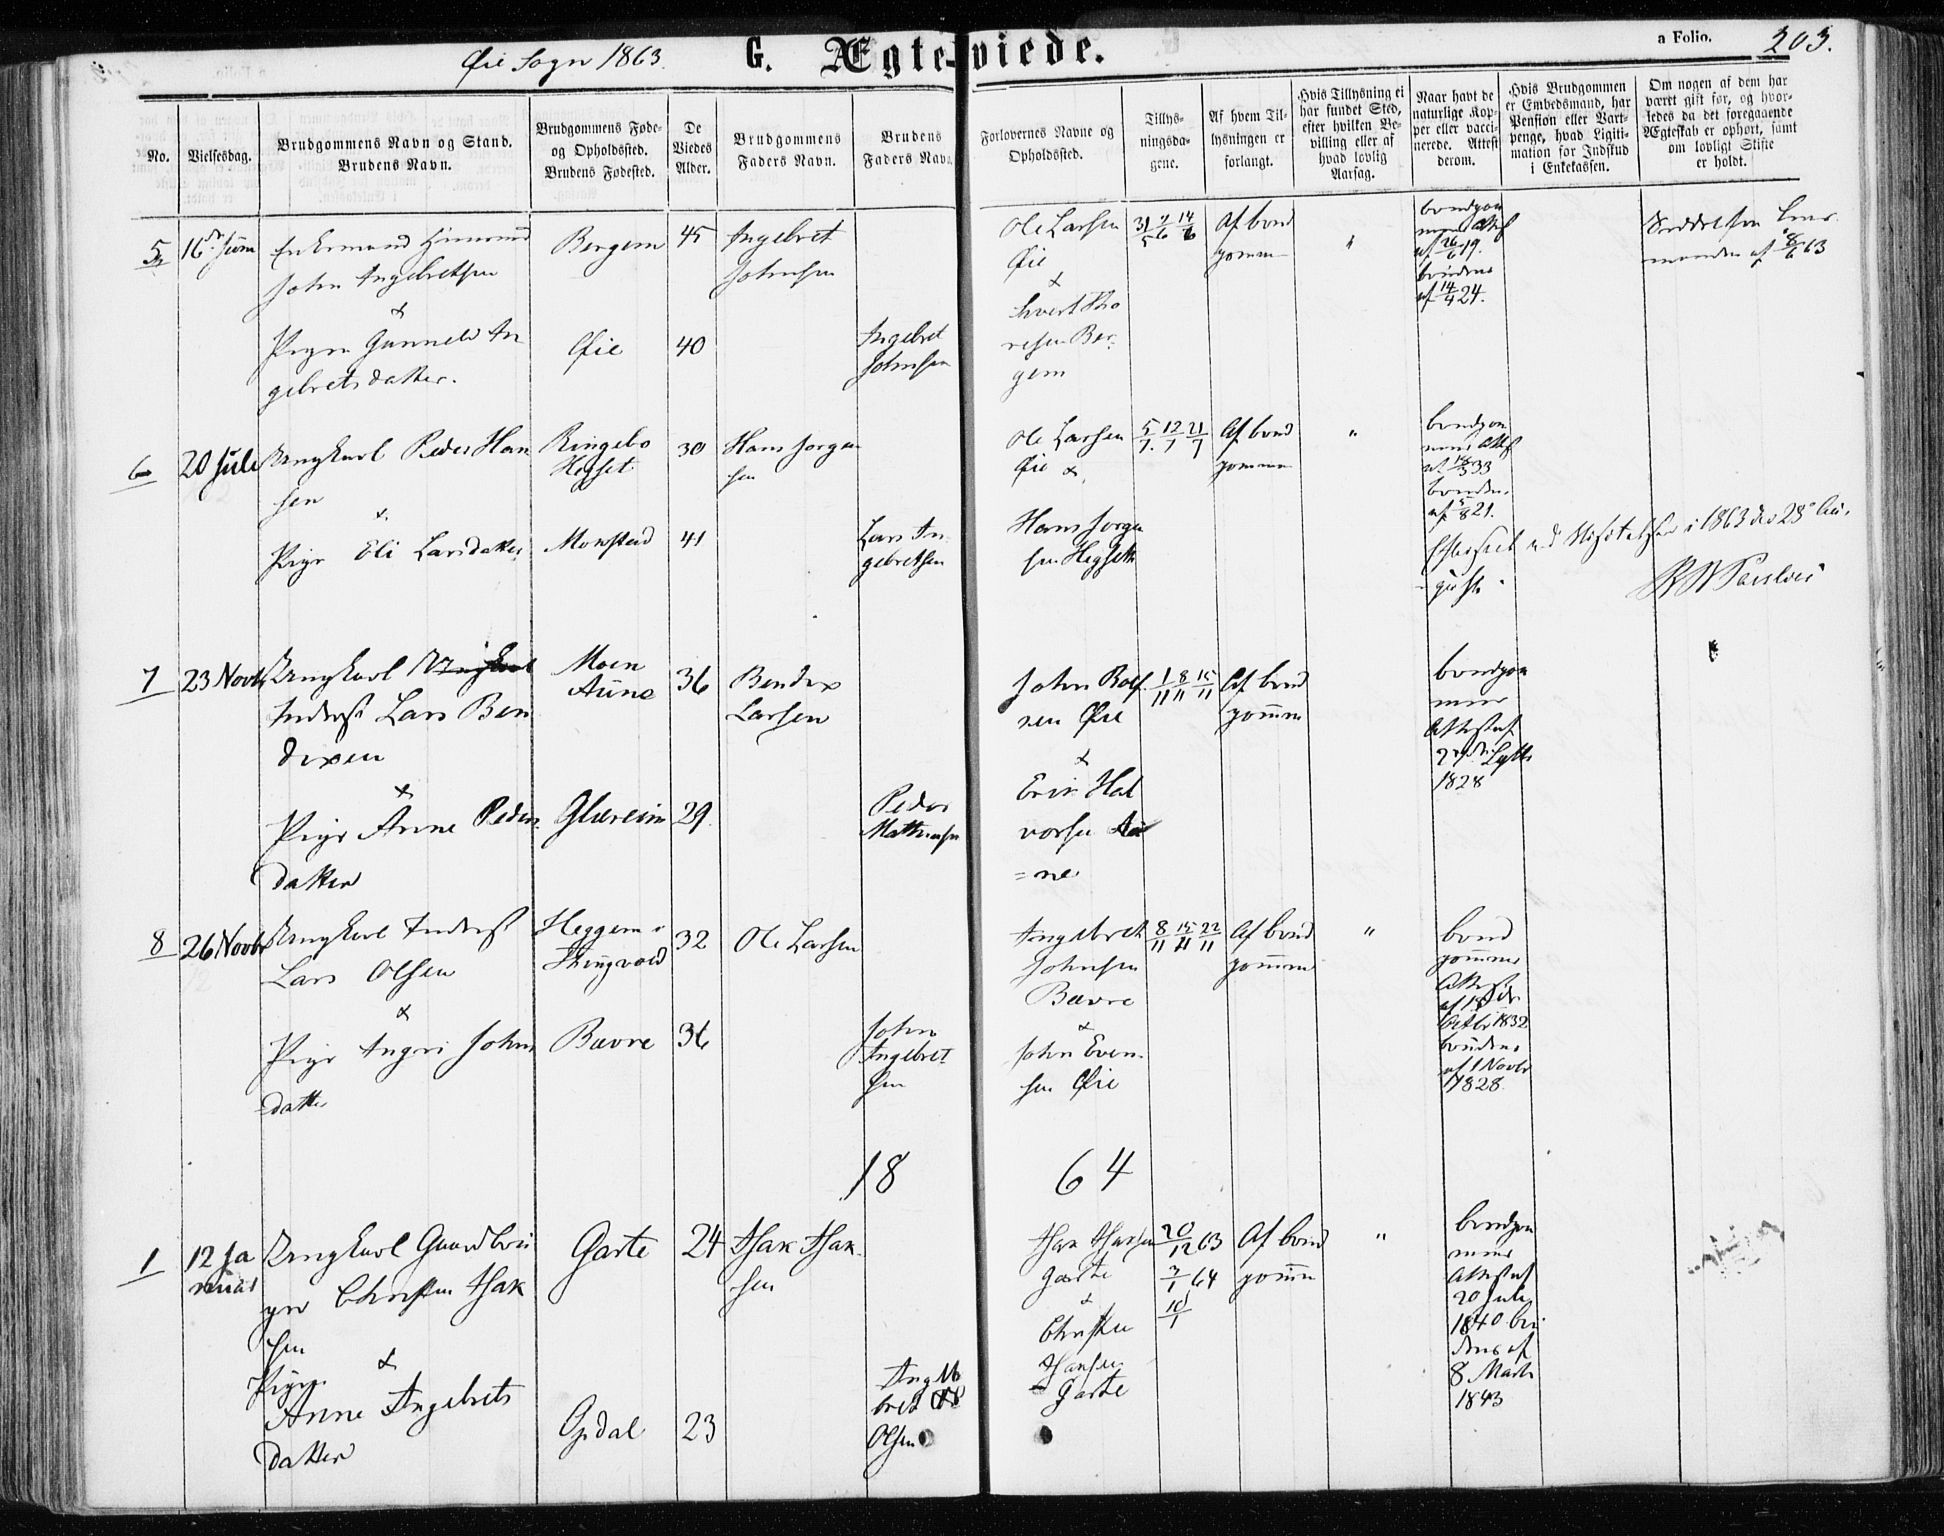 Øie Sogn 1863.
G. Ægteviede.
a Folio.
203.
No.
Vielsesdag.
Brudgommens Navn og Stand.
Brudens Navn.
Brudgommens Føde-
og Opholdssted.
Brudens Fødested.
De
Viedes
Alder.
Brudgommens
Faders Navn.
Brudens
Faders Navn
Forlovernes Navne og
Opholdssted.
Tillys-
ningsda-
gene.
Af hvem Til-
lysningen er
forlangt.
Hvis Tillysning ei
har fundet Sted,
efter hvilken Be-
villing eller af
hvad lovlig
Aarsag.
Naar havt de
naturlige Kop-
per eller vacci-
nerede. Attest
derom.
Hvis Brudgommen
er Embedsmand, har
Pension eller Vart-
penge, hvad Ligiti-
mation for Indskud
i Enkekassen.
Om nogen af dem har
været gift før, og hvor-
ledes da det foregaaende
Ægteskab er ophørt, samt
om lovligt Skifte
er holdt.
5
16de Juni
Enkemand
John Ingebretsen
&
Pige Gunnild In
gebretsdatter.
Bergem
Øie
45
40
Ingebret
Johnsen
Ingebret
Johnsen
Ole Larsen
Øie
&
Sivert Tho
resen Ber-
gem
31/5 7/6 14/6
Af brud
gommen
"
brudgom
mens Att
af 26/6 19.
brudens
af 14/4 24.
af 8/6 63
6
20 Juli
Ungkarl Peder Han
sen
&
Pige Eli Larsdatter
Ringebo
Hegset
Monstad
30
41
Hans Jørgen
sen
Lars In
gebretsen
Ole Larsen
Øie &
Hans Jørgen
sen Hegseth
5/7 12/7 21/7
Af brud
gommen
"
brudgom
mens Att
af 18/5 33
brudens
af 5/8 21.
Efterseet ved Visitatsen i 1863 den 28de Au-
gust.
7
23 Novb
Ungkarl
Inderst Lars Ben
dixen
&
Pige Anne Peders
datter
Moen
Aune
Glæreim
36
29
Bendix
Larsen
Peder
Mathiasen
John Rolf
sen Øie
&
Erik Hal
vorsen Au
=ne
1/11 8/11 15/11
Af brud
gommen
brudgom
mens
Attest af
1828
8
26 Novbr
Ungkarl Inderst
Lars Olsen
&
Pige Ingri Johns
datter
Heggem i
Thingvold
Bævre
32
36
Ole Larsen
John
Ingebret
sen
Ingebret
Johnsen
Bævre
&
John Even-
sen Øie
8/11 15/11 22/11
Af brud
gommen
"
brud
gommens
Attest
Octbr 1832
brudens
af 1 Novbr
1828.
1864
1
12 Ja
nuar
Ungkarl Gaardbru
ger Christen Isak
sen
&
Pige
Anne Ingebrets
datter
Garte
Opdal
24
23
Isak Isak
sen
Inge
bret
Olsen
Isak Hansen
Garte
&
Christen
Hansen
Garte
20/12 63
3/1 64
10/1
Af brud
gommen
"
brudgom
mens
Attest af
20 Juli
1840 bru
dens af
8 Marts
1843